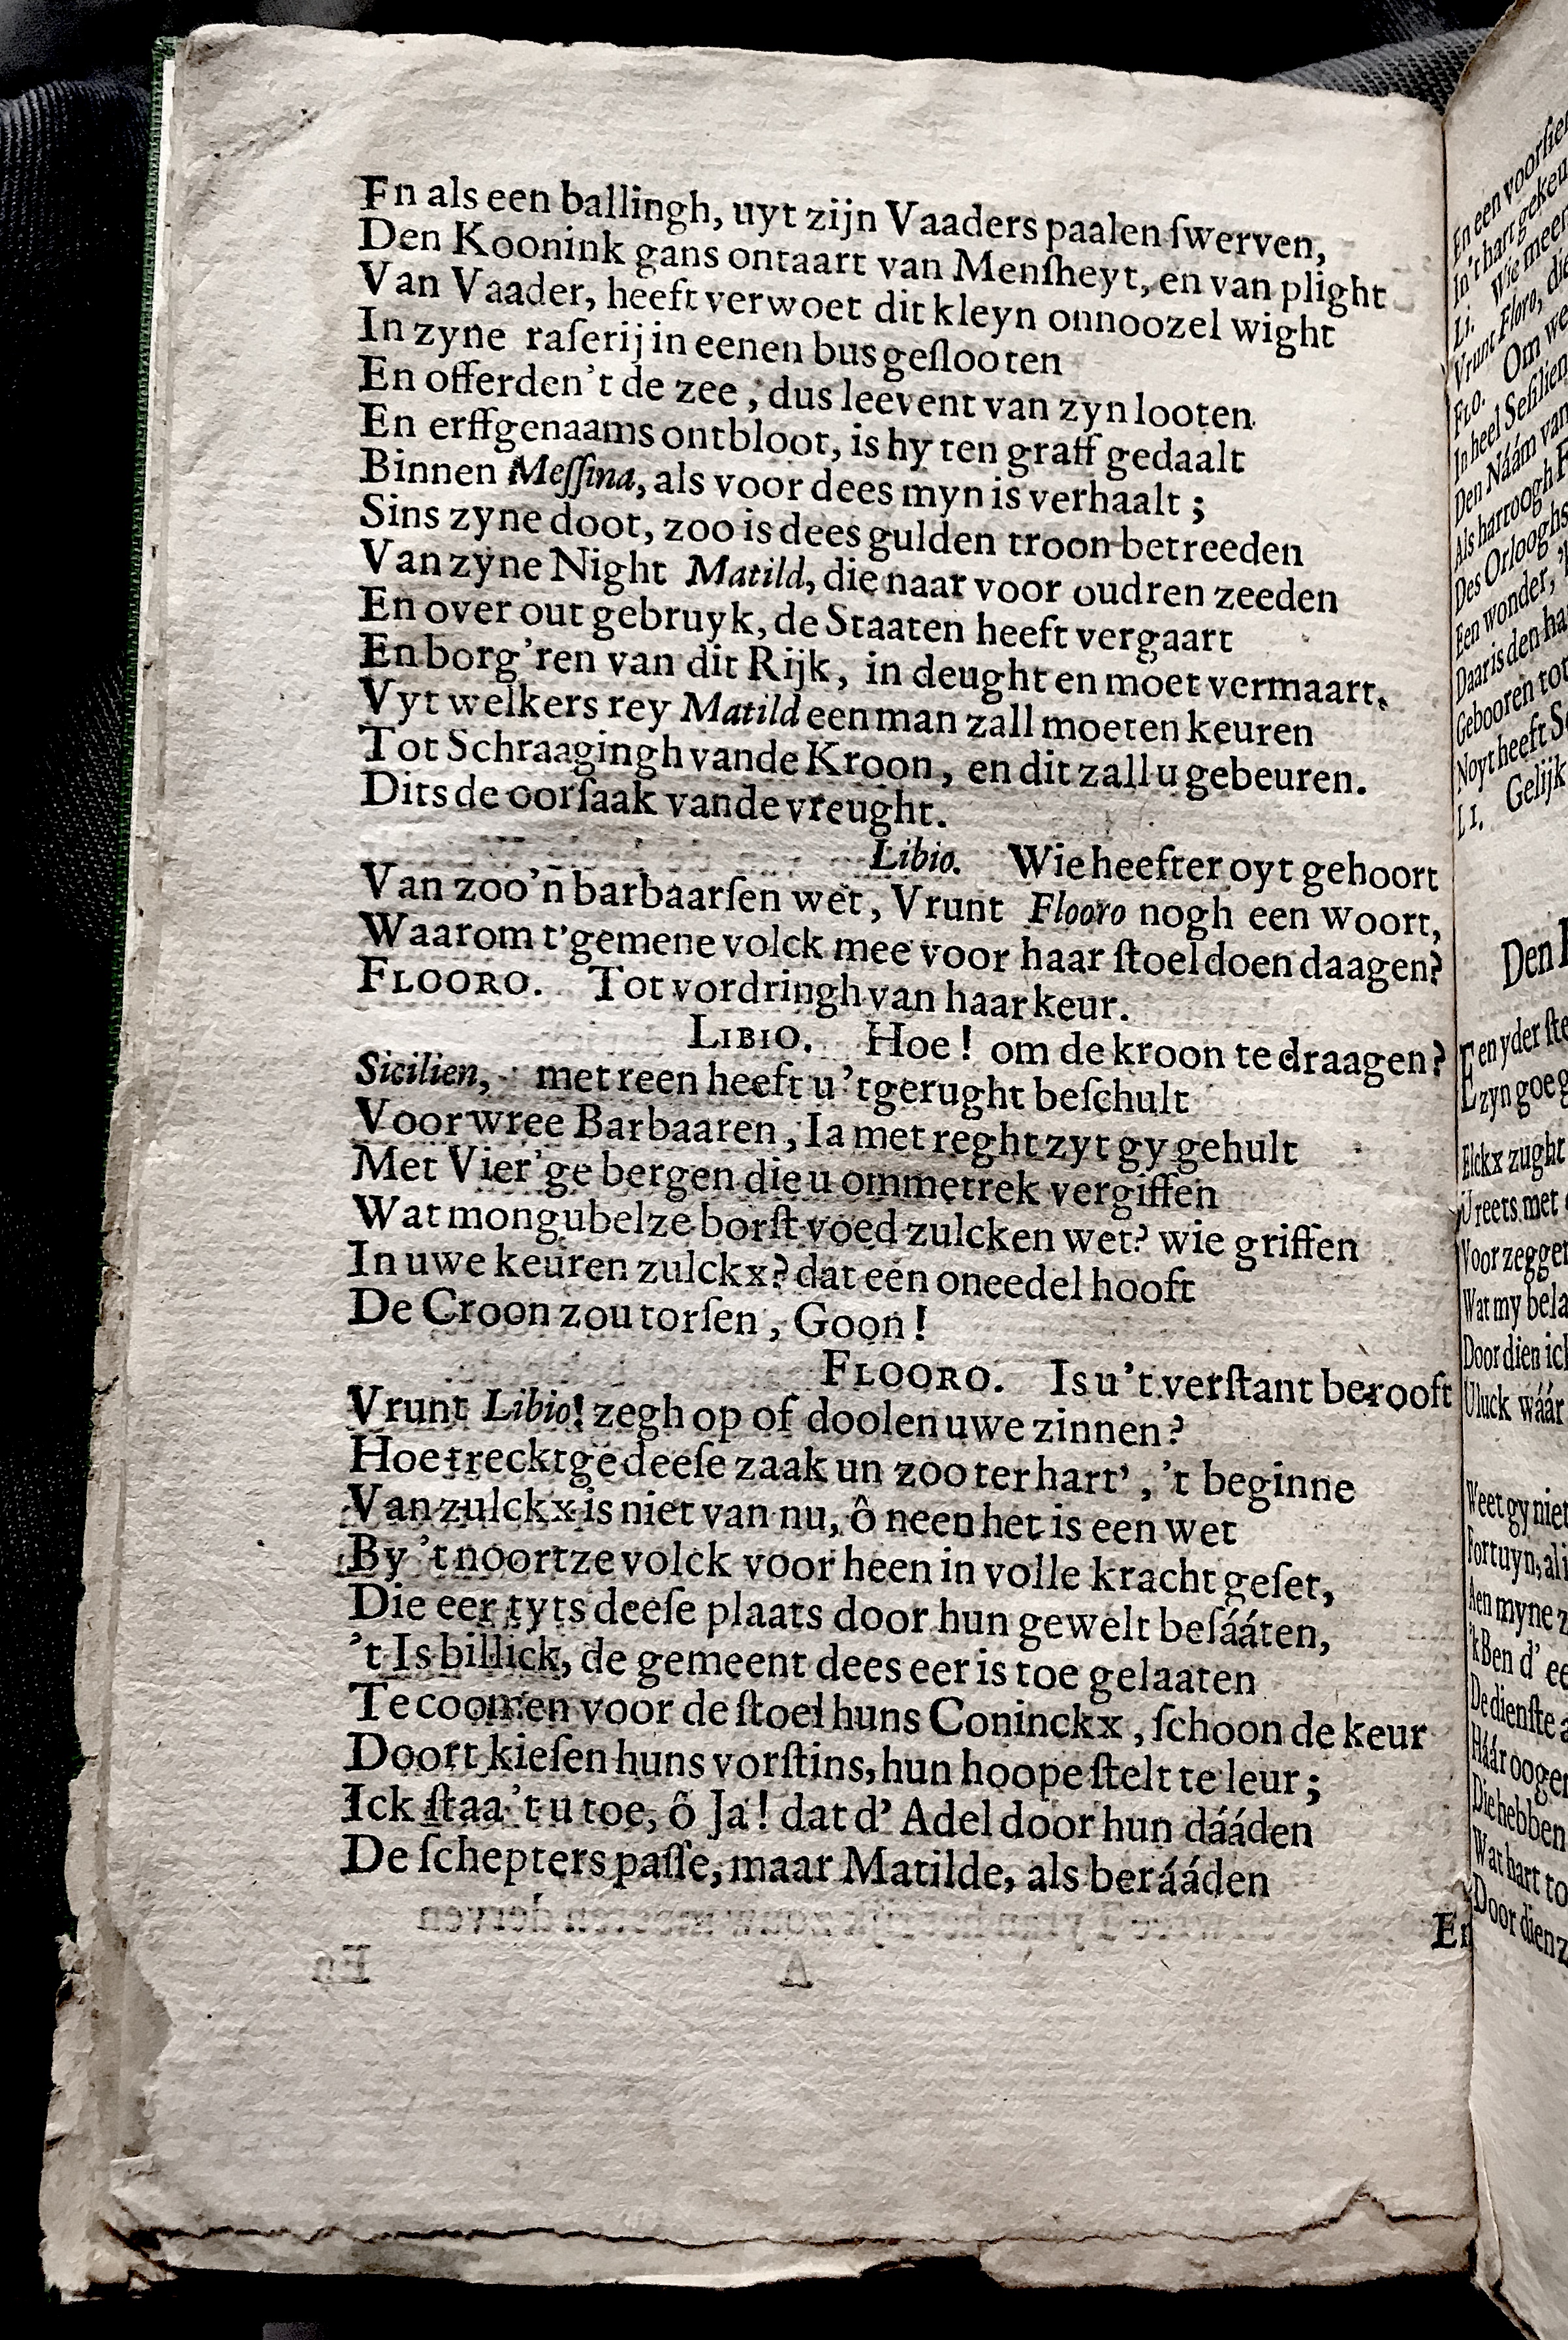 En als een ballingh, uyt zijn Vaaders paalen ſwerven,
Den Koonink gans ontaart van Menſheyt, en van plight
Van Vaader, heeft verwoet dit kleyn onnoozel wight
In zyne raſerij in eenen bus geſlooten
En offerden't de zee, dus leevent van zyn looten
En erffgenaams ontbloot, is hy ten graff gedaalt
Binnen Meſſina, als voor dees myn is verhaalt;
Sins zyne doot, zoo is dees gulden troon betreeden
Van zyne Night Matild, die naar voor oudren zeeden
En over out gebruyk, de Staaten heeft vergaart
En borg'ren van dit Rijk, in deught en moet vermaart.
Vyt welkers rey Matild een man zall moeten keuren
Tot Schraagingh vande Kroon, en dit zall u gebeuren.
Dits de oorſaak vande vreught.
Libio. Wie heefter oyt gehoort
Van zoo'n barbaarſen wet, Vrunt Flooro nogh een woort,
Waarom t'gemene volck mee voor haar ſtoel doen daagen?
FLOORO. Tot vordringh van haar keur.
LIBIO. Hoe! om de kroon te draagen?
Sicilien, met reen heeft u 't gerught beſchult
Voor wree Barbaaren, Ia met reght zyt gy gehult
Met Vier'ge bergen die u ommetrek vergiffen
Wat mongubelze borſt voed zulcken wet? wie griffen
In uwe keuren zulckx? dat een oneedel hooft
De Croon zou torſen, Goon!
FLOORO. Is u 't verſtant berooft
Vrunt Libio! zegh op of doolen uwe zinnen?
Hoe trecktge deeſe zaak un zoo ter hart', 't beginne
Van zulckx is niet van nu, ô neen het is een wet
By 't noortze volck voor heen in volle kracht geſet,
Die eer tyts deeſe plaats door hun gewelt beſááten,
't Is billick, de gemeent dees eer is toe gelaaten
Te coomen voor de ſtoel huns Coninckx, ſchoon de keur
Doort kieſen huns vorſtins, hun hoope ſtelt te leur;
Ick ſtaa 't u toe, ô Ja! dat d' Adel door hun dááden
De ſchepters paſſe, maar Matilde, als berááden
En
En een voorſie
In't hart geken
LI. Wie meer
Vrunt Floro, die
FLO. Om we
In heel Seſilien
Den Náám van
Als hartoogh
Des Orlooghs
Een wonder,
Daar is den ha
Gebooren tot
Noyt heeft S
LI. Gelijk
Den
Een yder ſte
zyn goe g
Elckx zught
Ureets met
Voor zegger
Wat my bela
Door dien ick
Uluck wáár
Weet gy niet
Fortuyn, al i
Aen myne z
'k Ben d' ee
De dienſte a
Háár oogen
Die hebben
Wat hart to
Door dien z